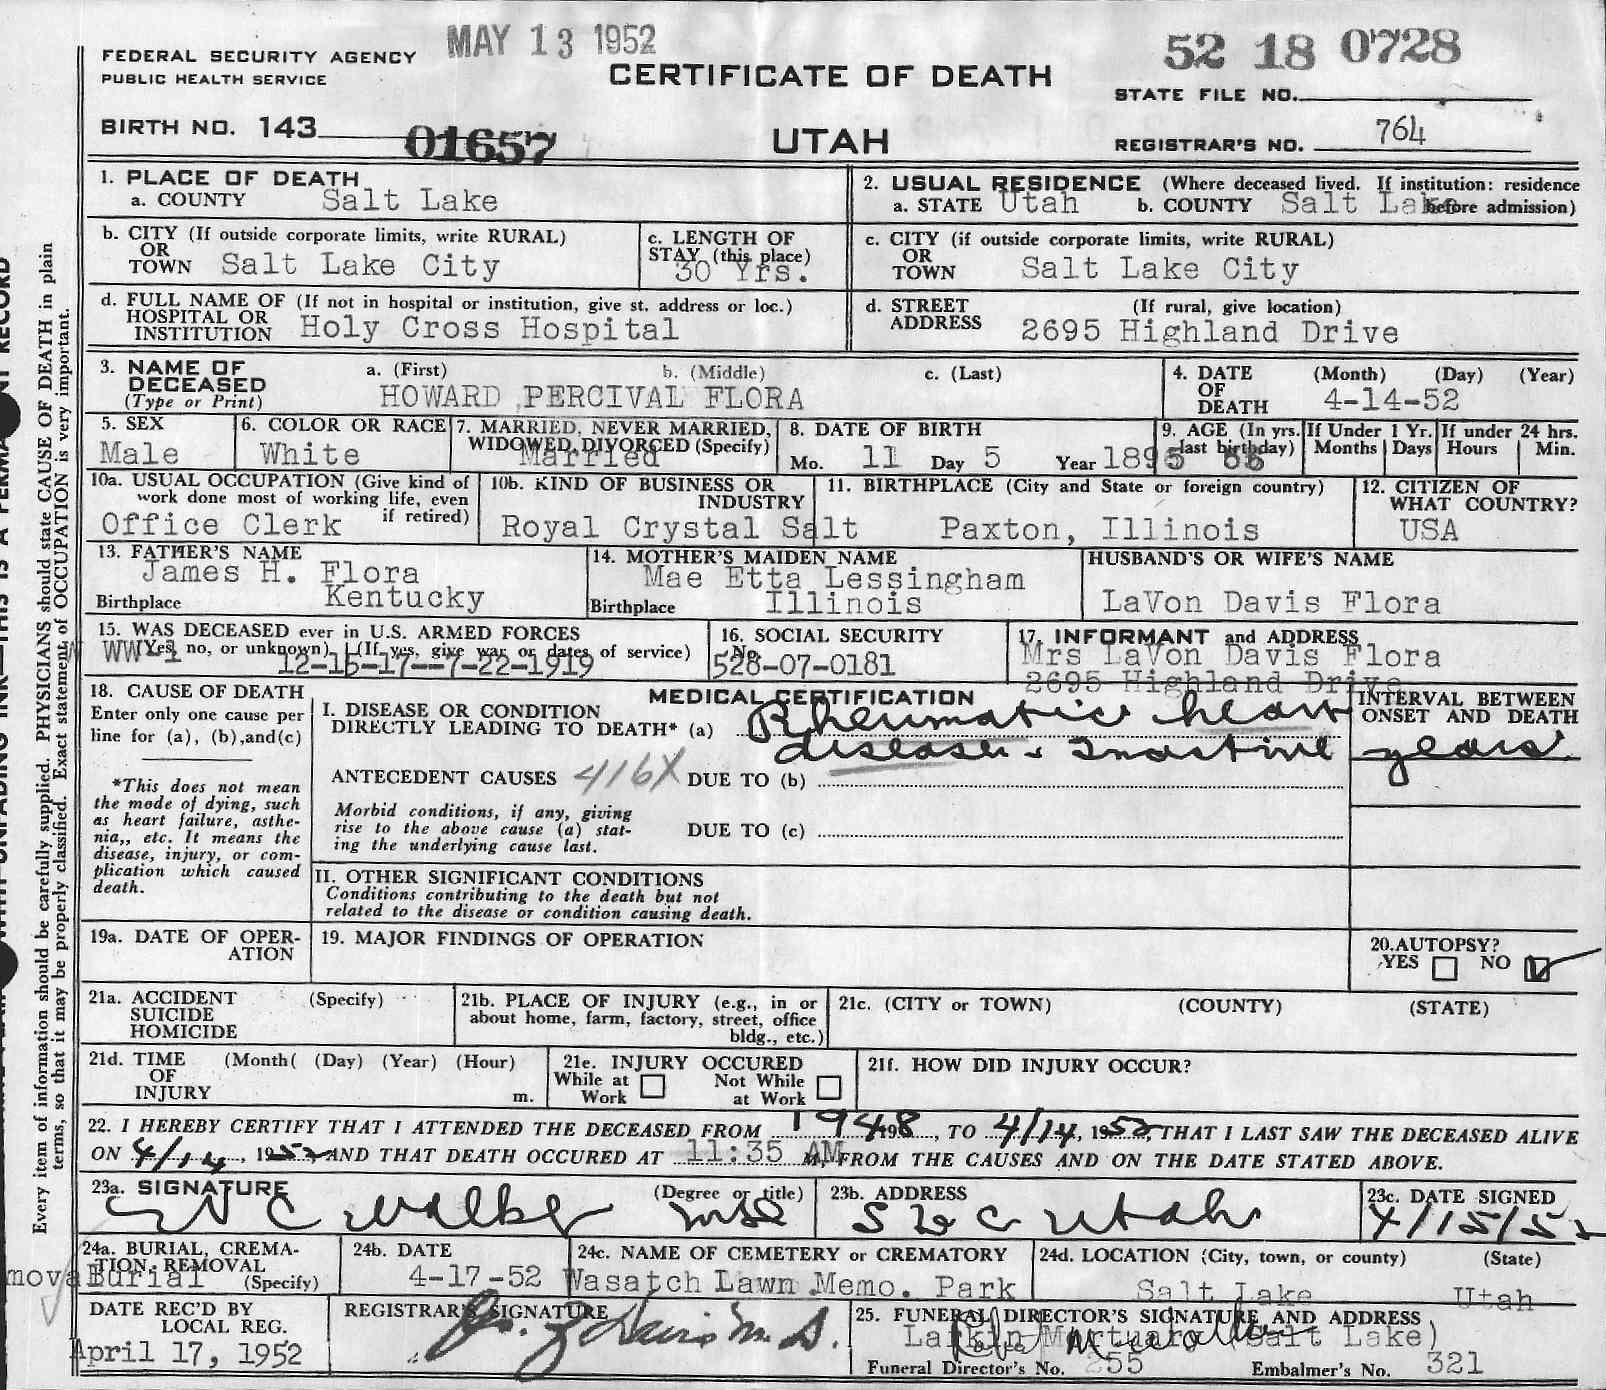 MAY 13 1952
52 18 0728
FEDERAL SECURITY AGENCY
PUBLIC HEALTH SERVICE
CERTIFICATE OF DEATH
STATE FILE NO.
BIRTH NO. 143
01657
UTAH
REGISTRAR'S NO. 764
1. PLACE OF DEATH
a. COUNTY Salt Lake
2. USUAL RESIDENCE (Where deceased lived. If institution: residence before admission)
a. STATE Utah b. COUNTY Salt Lake
b. CITY (If outside corporate limits, write RURAL)
OR
TOWN Salt Lake City
c. LENGTH OF
STAY (this place)
30 Yrs.
c. CITY (if outside corporate limits, write RURAL)
OR
TOWN Salt Lake City
d. FULL NAME OF (If not in hospital or institution, give st. address or loc.)
HOSPITAL OR
INSTITUTION Holy Cross Hospital
d. STREET (If rural, give location)
ADDRESS 2695 Highland Drive
3. NAME OF a. (First) b. (Middle) c. (Last)
DECEASED
(Type or Print) HOWARD PERCIVAL FLORA
4. DATE (Month) (Day) (Year)
OF
DEATH 4-14-52
5. SEX
Male
6. COLOR OR RACE
White
7. MARRIED, NEVER MARRIED,
WIDOWED, DIVORCED (Specify)
Married
8. DATE OF BIRTH
Mo. 11 Day 5 Year 1895
9. AGE (In yrs. last birthday)
If Under 1 Yr.
Months Days
If under 24 hrs.
Hours Min.
10a. USUAL OCCUPATION (Give kind of
work done most of working life, even
if retired)
Office Clerk
10b. KIND OF BUSINESS OR
INDUSTRY
Royal Crystal Salt
11. BIRTHPLACE (City and State or foreign country)
Paxton, Illinois
12. CITIZEN OF
WHAT COUNTRY?
USA
13. FATHER'S NAME
James H. Flora
Birthplace Kentucky
14. MOTHER'S MAIDEN NAME
Mae Etta Lessingham
Birthplace Illinois
HUSBAND'S OR WIFE'S NAME
LaVon Davis Flora
15. WAS DECEASED ever in U.S. ARMED FORCES
(Yes, no, or unknown) (If yes, give war or dates of service)
WW-1 12-15-17--7-22-1919
16. SOCIAL SECURITY
No.
528-07-0181
17. INFORMANT and ADDRESS
Mrs LaVon Davis Flora
2695 Highland Drive
18. CAUSE OF DEATH
Enter only one cause per
line for (a), (b),and(c)
*This does not mean
the mode of dying, such
as heart failure, asthe-
nia,, etc. It means the
disease, injury, or com-
plication which caused
death.
MEDICAL CERTIFICATION
I. DISEASE OR CONDITION
DIRECTLY LEADING TO DEATH* (a) Rheumatic heart
disease Inactive
INTERVAL BETWEEN
ONSET AND DEATH
years
ANTECEDENT CAUSES 416X DUE TO (b)
Morbid conditions, if any, giving
rise to the above cause (a) stat-
ing the underlying cause last.
DUE TO (c)
II. OTHER SIGNIFICANT CONDITIONS
Conditions contributing to the death but not
related to the disease or condition causing death.
19a. DATE OF OPER-
ATION
19. MAJOR FINDINGS OF OPERATION
20.AUTOPSY?
YES NO
21a. ACCIDENT (Specify)
SUICIDE
HOMICIDE
21b. PLACE OF INJURY (e.g., in or
about home, farm, factory, street, office
bldg., etc.)
21c. (CITY or TOWN) (COUNTY) (STATE)
21d. TIME (Month( (Day) (Year) (Hour)
OF
INJURY m.
21e. INJURY OCCURED
While at Work Not While at Work
21f. HOW DID INJURY OCCUR?
22. I HEREBY CERTIFY THAT I ATTENDED THE DECEASED FROM 1948, TO 4/14, 1952, THAT I LAST SAW THE DECEASED ALIVE
ON 4/14, 1952, AND THAT DEATH OCCURED AT 11:35 AM, FROM THE CAUSES AND ON THE DATE STATED ABOVE.
23a. SIGNATURE (Degree or title)
C Walker MD
23b. ADDRESS
SLC Utah
23c. DATE SIGNED
4/15/52
24a. BURIAL, CREMA-
TION, REMOVAL
(Specify)
Burial
24b. DATE
4-17-52
24c. NAME OF CEMETERY or CREMATORY
Wasatch Lawn Memo. Park
24d. LOCATION (City, town, or county) (State)
Salt Lake Utah
DATE REC'D BY
LOCAL REG.
April 17, 1952
REGISTRAR'S SIGNATURE
25. FUNERAL DIRECTOR'S SIGNATURE AND ADDRESS
Larkin Mortuary (Salt Lake)
Funeral Director's No. 255 Embalmer's No. 321
Every item of information should be carefully supplied. PHYSICIANS should state CAUSE OF DEATH in plain
terms, so that it may be properly classified. Exact statement of OCCUPATION is very important.